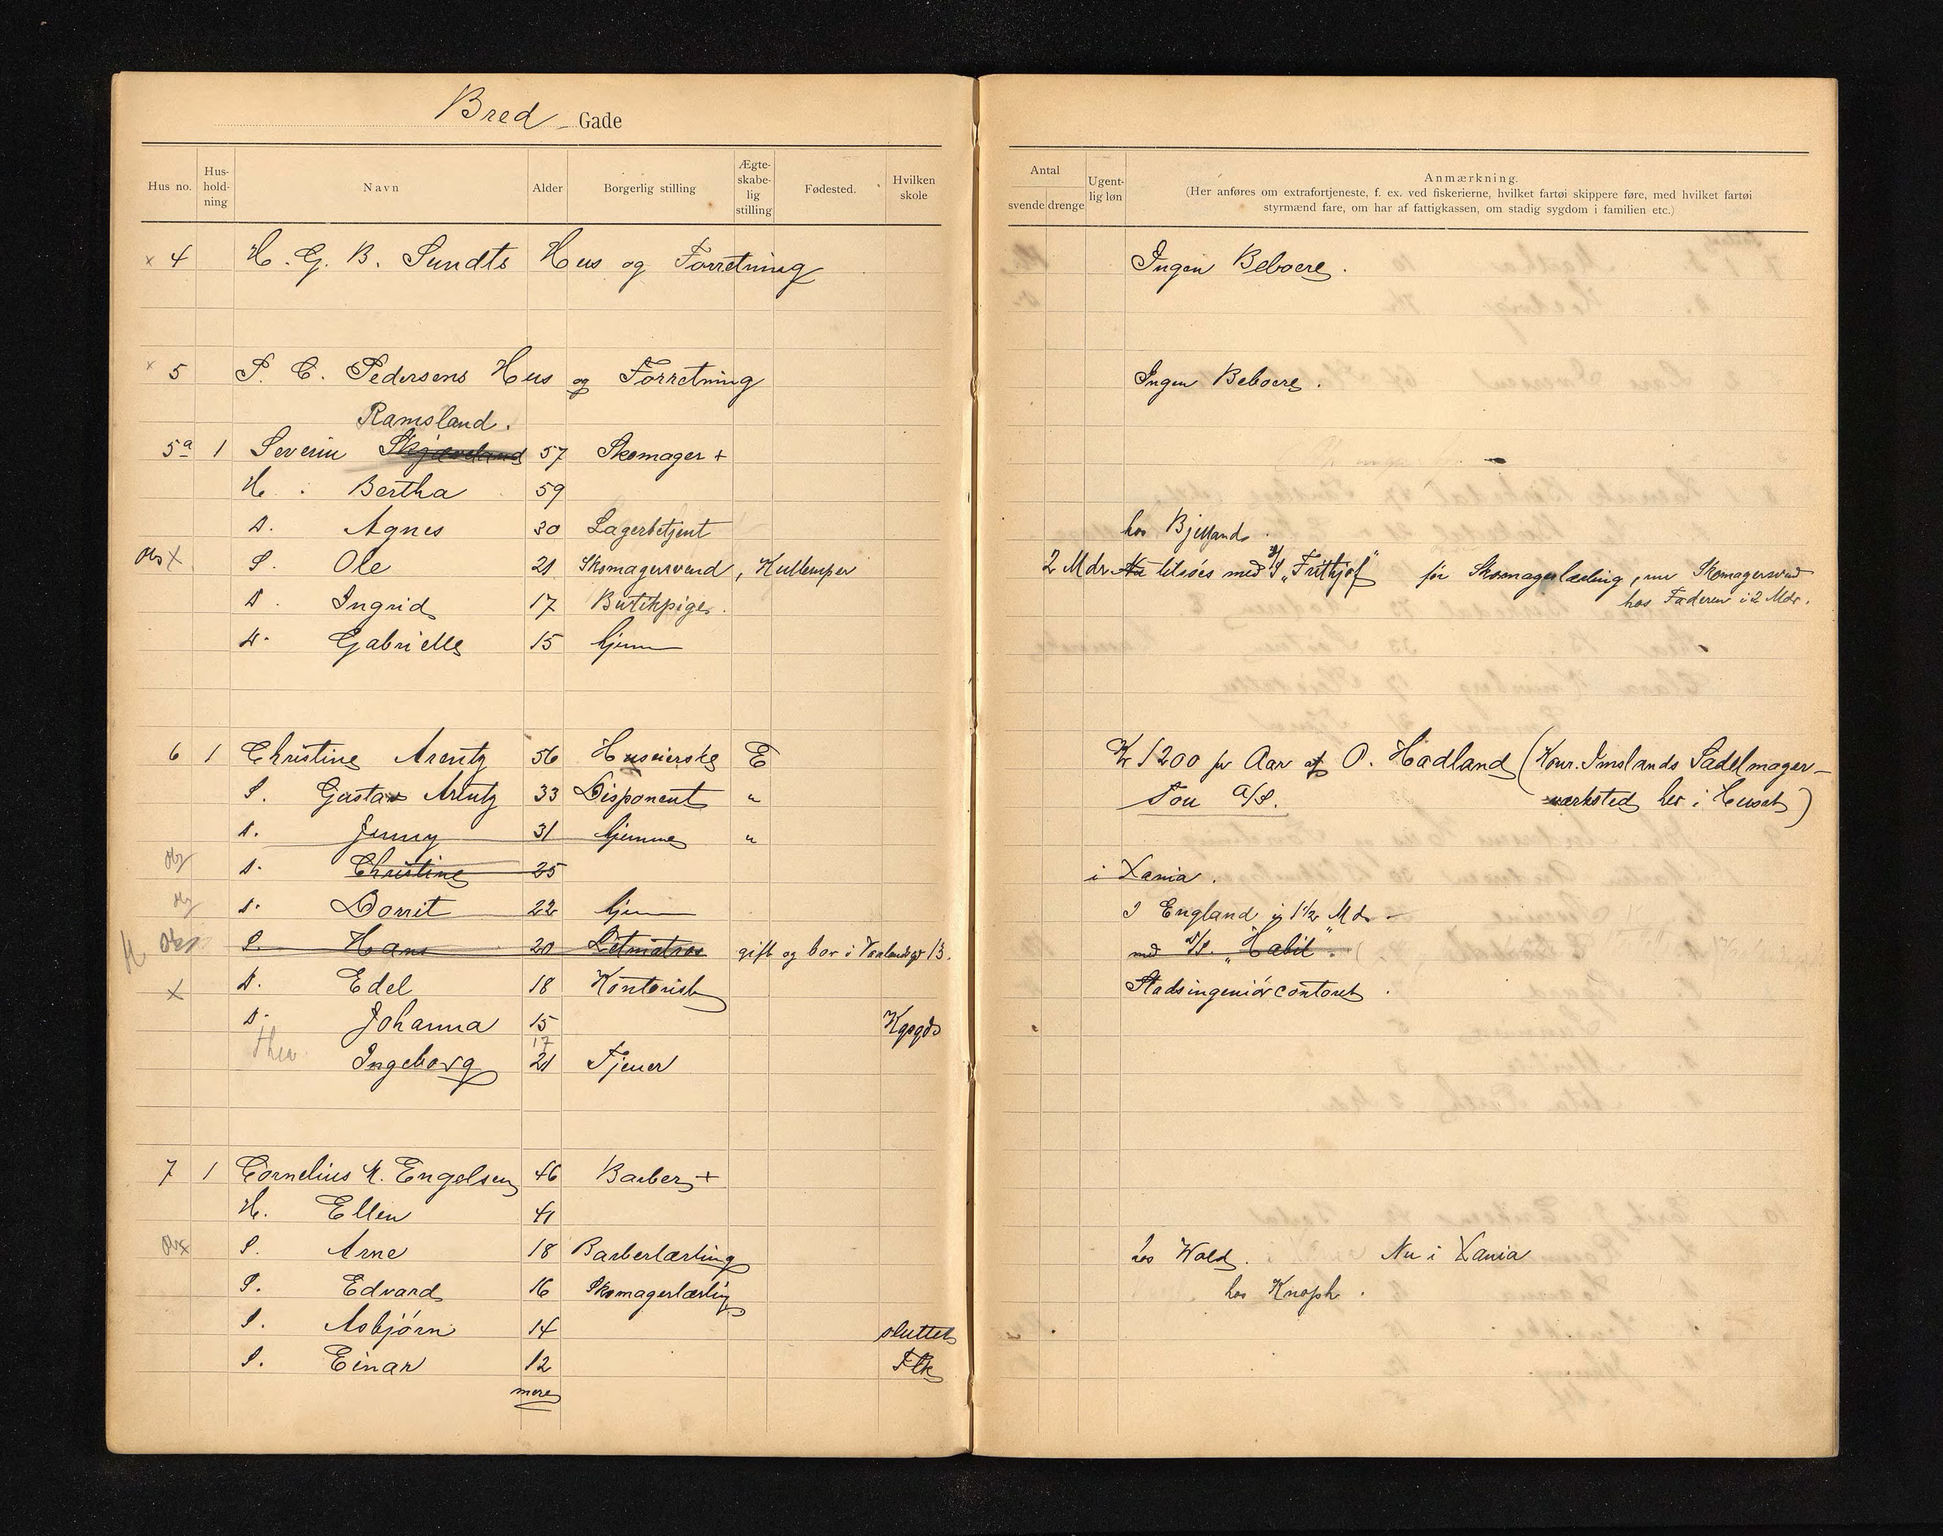 Bred Gade
Hus no. Hus-hold-ning Navn Alder Borgerlig stilling Ægte-skabe-lig stilling Fødested. Hvilken skole
Antal svende drenge Ugent-lig løn Anmærkning.
(Her anføres om extrafortjeneste, f. ex. ved fiskerierne, hvilket fartøi skippere føre, med hvilket fartøi
styrmænd fare, om har af fattigkassen, om stadig sygdom i familien etc.)
x 4 H. G. B. Sundts Hus og Forretning Ingen Beboere.
x 5 P. C. Pedersens Hus og Forretning Ingen Beboere.
Ramsland.
5a 1 Severin Skjæveland 57 Skomager +
H. Bertha 59
D. Agnes 30 Lagerbetjent hos Bjelland.
Obs X S. Ole 21 Skomagersvend, Kullemper 2 Mdr Nu tilsøes med S/S "Frithjof" før Skomagerlærling, nu Skomagersvend
hos Faderen i 2 Mdr.
D. Ingrid 17 Butikpige.
D. Gabrielle 15 hjem
6 1 Christine Arentz 56 Huseierske E Kr 1200 pr Aar af O. Hadland (Konr. Imslands Sadelmager-
S. Gustav Arentz 33 Disponent " Tou A/S. værksted her i Huset)
D. Jenny 31 hjemme "
D. Christine 25 i Xania.
D. Dorrit 22 hjem I England i 1 1/2 Mdr
Obs S. Hans 20 Letmatros gift og bor i Vaalandsgt 13. med S/S. "Habil".
X D. Edel 18 Kontorist Stadsingeniørcontoret.
D. Johanna 15 Kgsgds
17
Thea Ingeborg 21 Tjener
7 1 Cornelius M. Engelsen 46 Barber +
H. Ellen 41
Obs S. Arne 18 Barberlærling hos Wold. Nu i Xania
S. Edvard 16 Skomagerlærling hos Knoph.
S. Asbjørn 14 sluttet
S. Einar 12 Flk
mere